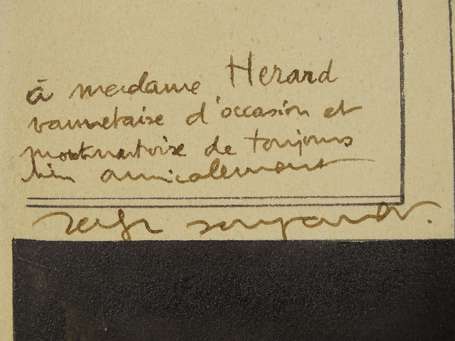 à madame Herard
vannetaise d'occasion et
de toujours
bien amicalement